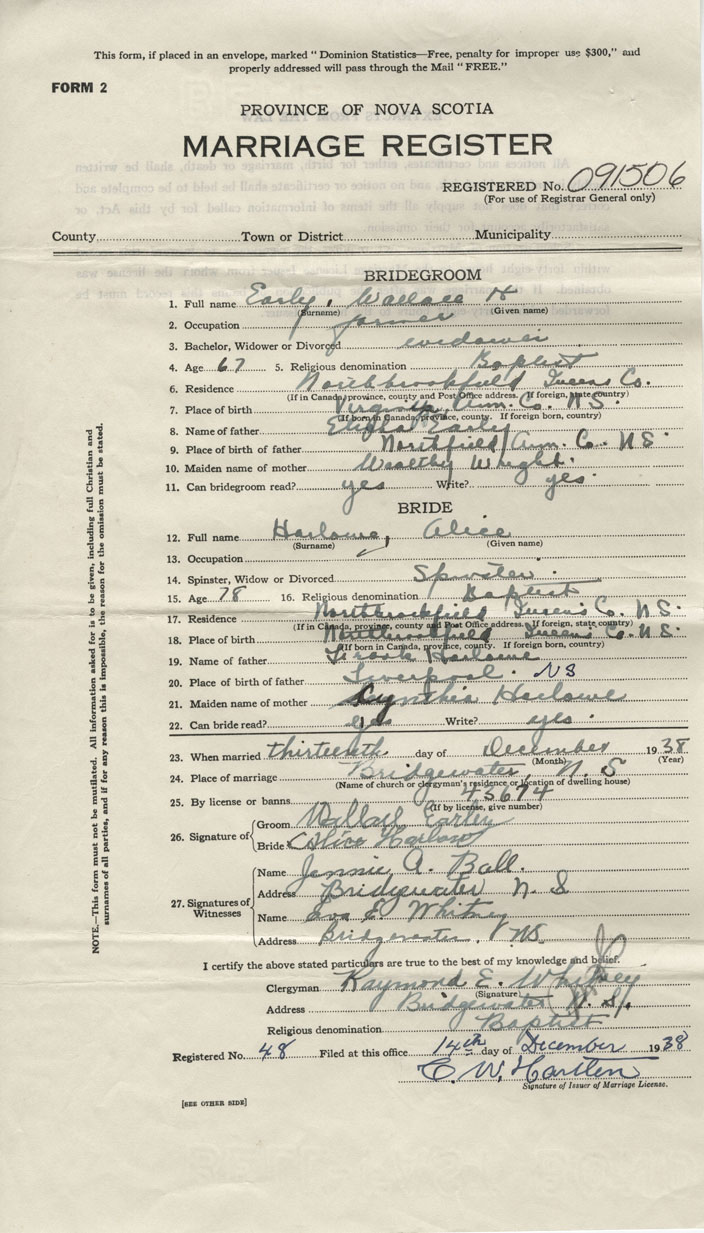 This form, if placed in an envelope, marked "Dominion Statistics—Free, penalty for improper use $300," and
properly addressed will pass through the Mail "FREE."
FORM 2
PROVINCE OF NOVA SCOTIA
MARRIAGE REGISTER
REGISTERED No. 091506
(For use of Registrar General only)
County Town or District Municipality
BRIDEGROOM
1. Full name Early, Wallace H
(Surname) (Given name)
2. Occupation farmer
3. Bachelor, Widower or Divorced widower
4. Age 67 5. Religious denomination Baptist
6. Residence Northbrookfield Queens Co.
(If in Canada, province, county and Post Office address. If foreign, state country)
7. Place of birth Virginia, Ann. Co. N S.
(If born in Canada, province, county. If foreign born, country)
8. Name of father Early
9. Place of birth of father Northfield Ann. Co. N S.
10. Maiden name of mother Wealthy Wright.
11. Can bridegroom read? yes Write? yes.
BRIDE
12. Full name Harlowe, Alice
(Surname) (Given name)
13. Occupation
14. Spinster, Widow or Divorced Spinster.
15. Age 78 16. Religious denomination Baptist
17. Residence Northbrookfield Queens Co. N S.
(If in Canada, province, county and Post Office address. If foreign, state country)
18. Place of birth Northbrookfield Queens Co. N S.
(If born in Canada, province, county. If foreign born, country)
19. Name of father Harlowe
20. Place of birth of father Liverpool. NS
21. Maiden name of mother Cynthia Harlowe
22. Can bride read? yes Write? yes.
23. When married thirteenth day of December 1938
(Month) (Year)
24. Place of marriage Bridgewater, N. S
(Name of church or clergyman's residence or location of dwelling house)
25. By license or banns 45674
(If by license, give number)
26. Signature of Groom Wallace Earley
Bride Alice Harlow
27. Signatures of Witnesses Name Jennie A. Ball.
Address Bridgewater N. S
Name Eva E. Whitney
Address Bridgewater, NS.
I certify the above stated particulars are true to the best of my knowledge and belief.
Clergyman Raymond E. Whitney
(Signature)
Address Bridgewater N. S.
Religious denomination Baptist
Registered No. 48 Filed at this office 14th day of December 1938
C. W. Hartlen
Signature of Issuer of Marriage License.
[SEE OTHER SIDE]
NOTE.—This form must not be mutilated. All information asked for is to be given, including full Christian and
surnames of all parties, and if for any reason this is impossible, the reason for the omission must be stated.